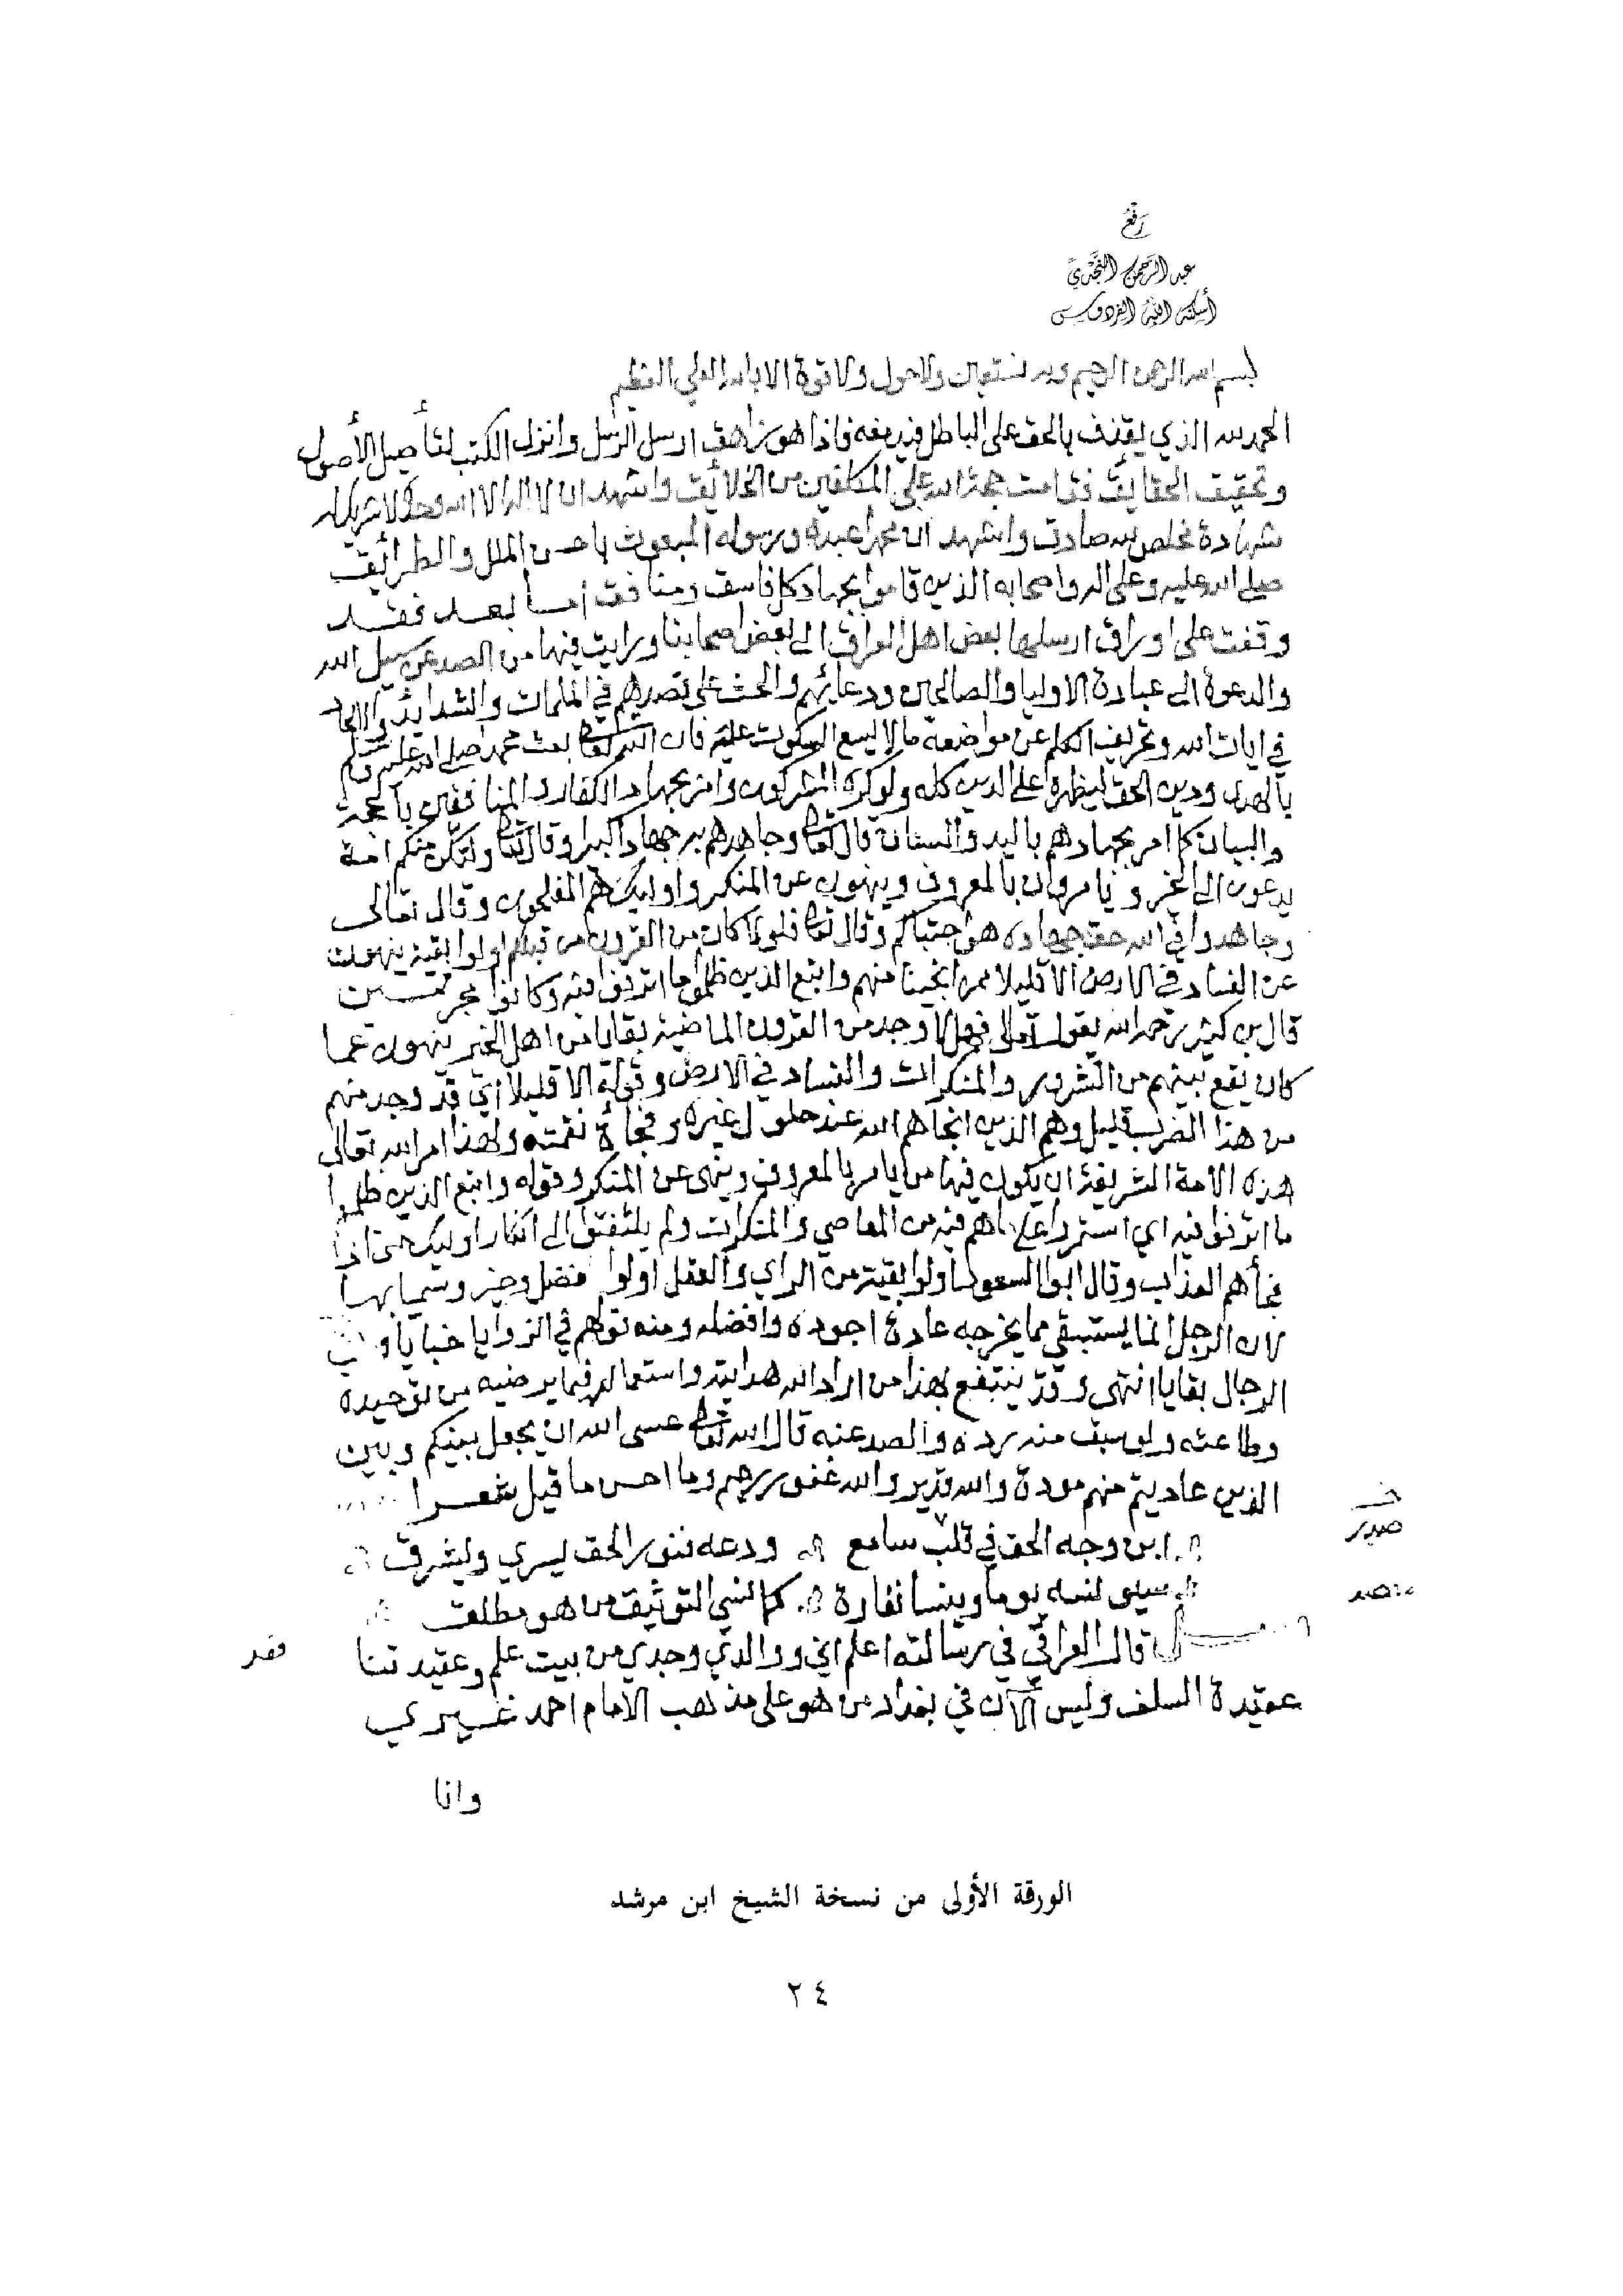 رفع
عبد الرحمن النجدي
أسكنه الله الفردوس
بسم الله الرحمن الرحيم وبه نستعين ولا حول ولا قوة الا بالله العلي العظيم
الحمد لله الذي يقذف بالحق على الباطل فيدمغه فاذا هو زاهق ارسل الرسل وانزل الكتب لتأصيل الأصول
وتحقيق الحقايق فقامت حجة الله على المكلفين من الخلائق واشهد ان لا اله الا الله وحده لا شريك له
شهادة مخلص لله صادق واشهد ان محمدا عبده ورسوله المبعوث باحسن الملل والطرائق
صلى الله عليه وعلى اله واصحابه الذين قاموا بجهاد كل فاسق ومنافق اما بعد فقد
وقفت على اوراق ارسلها بعض اهل العراق الى بعض اصحابنا ورايت فيها من الصد عن سبيل الله
والدعوة الى عبادة الاوليا والصالحين ودعائهم والحث على قصدهم في الملمات والشدايد والالحاد
في ايات الله وتحريف الكلم عن مواضعه ما لا يسع السكوت عليه فان الله تعالى بعث محمدا صلى الله عليه وسلم
بالهدى ودين الحق ليظهره على الدين كله ولو كره المشركون وامر بجهاد الكفار والمنافقين بالحجة
والبيان كما امر بجهادهم باليد والسنان قال تعالى وجاهدهم به جهادا كبيرا وقال تعالى ولتكن منكم امة
يدعون الى الخير ويامرون بالمعروف وينهون عن المنكر واوليك هم المفلحون وقال تعالى
وجاهدوا في الله حق جهاده هو اجتباكم وقال تعالى فلولا كان من القرون من قبلكم اولوا بقية ينهون
عن الفساد في الارض الا قليلا ممن انجينا منهم واتبع الذين ظلموا ما اترفوا فيه وكانوا مجرمين
قال بن كثير رحمه الله يقول تعالى فهلا وجد من القرون الماضية بقايا من اهل الخير ينهون عما
كان يقع بينهم من الشرور والمنكرات والفساد في الارض وقوله الا قليلا اي قد وجد منهم
من هذا الضرب قليل وهم الذين انجاهم الله عند حلول غيره وفجأة نقمته ولهذا امر الله تعالى
هذه الامة الشريفة ان يكون فيها من يامر بالمعروف وينهى عن المنكر وقوله واتبع الذين ظلموا
ما اترفوا فيه اي استمروا على ما هم فيه من المعاصي والمنكرات ولم يلتفتوا الى انكار اوليك حتى اذا
فجأهم العذاب وقال ابوا السعود اولوا بقية من الراي والعقل اولوا فضل وخير وسميا بها
لان الرجل انما يستبقي مما يخرجه عادة اجوده وافضله ومنه قولهم في الزوايا خبايا وفي
الرجال بقايا انتهى وقد ينتفع بهذا من اراد الله هدايته واستعماله فيما يرضيه من توحيده
وطاعته ولو سبق منه رده والصد عنه قال الله تعالى عسى الله ان يجعل بينكم وبين
الذين عاديتم منهم مودة والله قدير والله غفور رحيم وما احسن ما قيل شعرا
ابن وجه الحق في قلب سامع ودعه فنور الحق يسري ويشرق
خـ
صدر
لنسه يوما وينسا نفارة كما نسي التوثيق من هو مطلق
قال العراقي في رسالته اعلم اني ووالدي وجدي من بيت علم وعقيدتنا
عقيدة السلف وليس الآن في بغداد من هو على مذهب الامام احمد غيري
وانا
الورقة الأولى من نسخة الشيخ ابن مرشد
٢٤